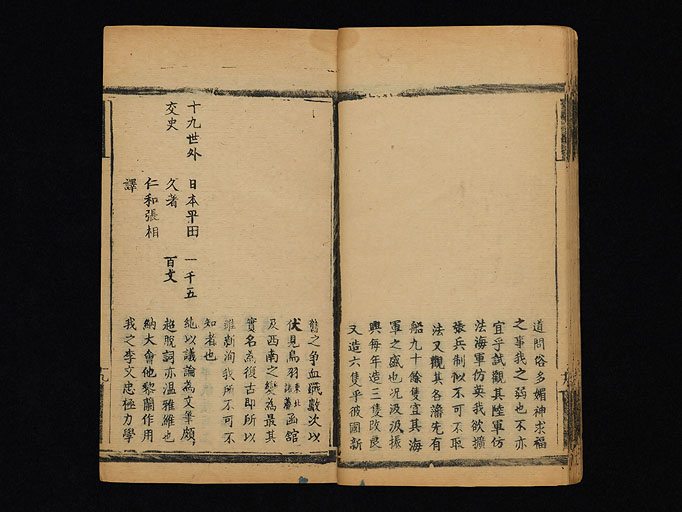 道問俗多媚神求福
之事我之弱也不亦
宜乎試觀其陸軍仿
法海軍仿英我欲擴
張兵制似不可不取
法又觀其各藩先有
船九十餘隻宜其海
軍之盛也况汲汲振
興每年造三隻改良
又造六隻乎彼國新
舊之争血戰數次以
伏見鳥羽東北諸藩函舘
及西南之變為最其
實名為復古即所以
維新洵我所不可不
知者也
十九世外 日本平田 一千五 純以議論為文筆頗
交史 久著 百文 超脫詞亦温雅雖也
仁和張相 納大會他黎蘭作用
譯 我之李文忠極力學